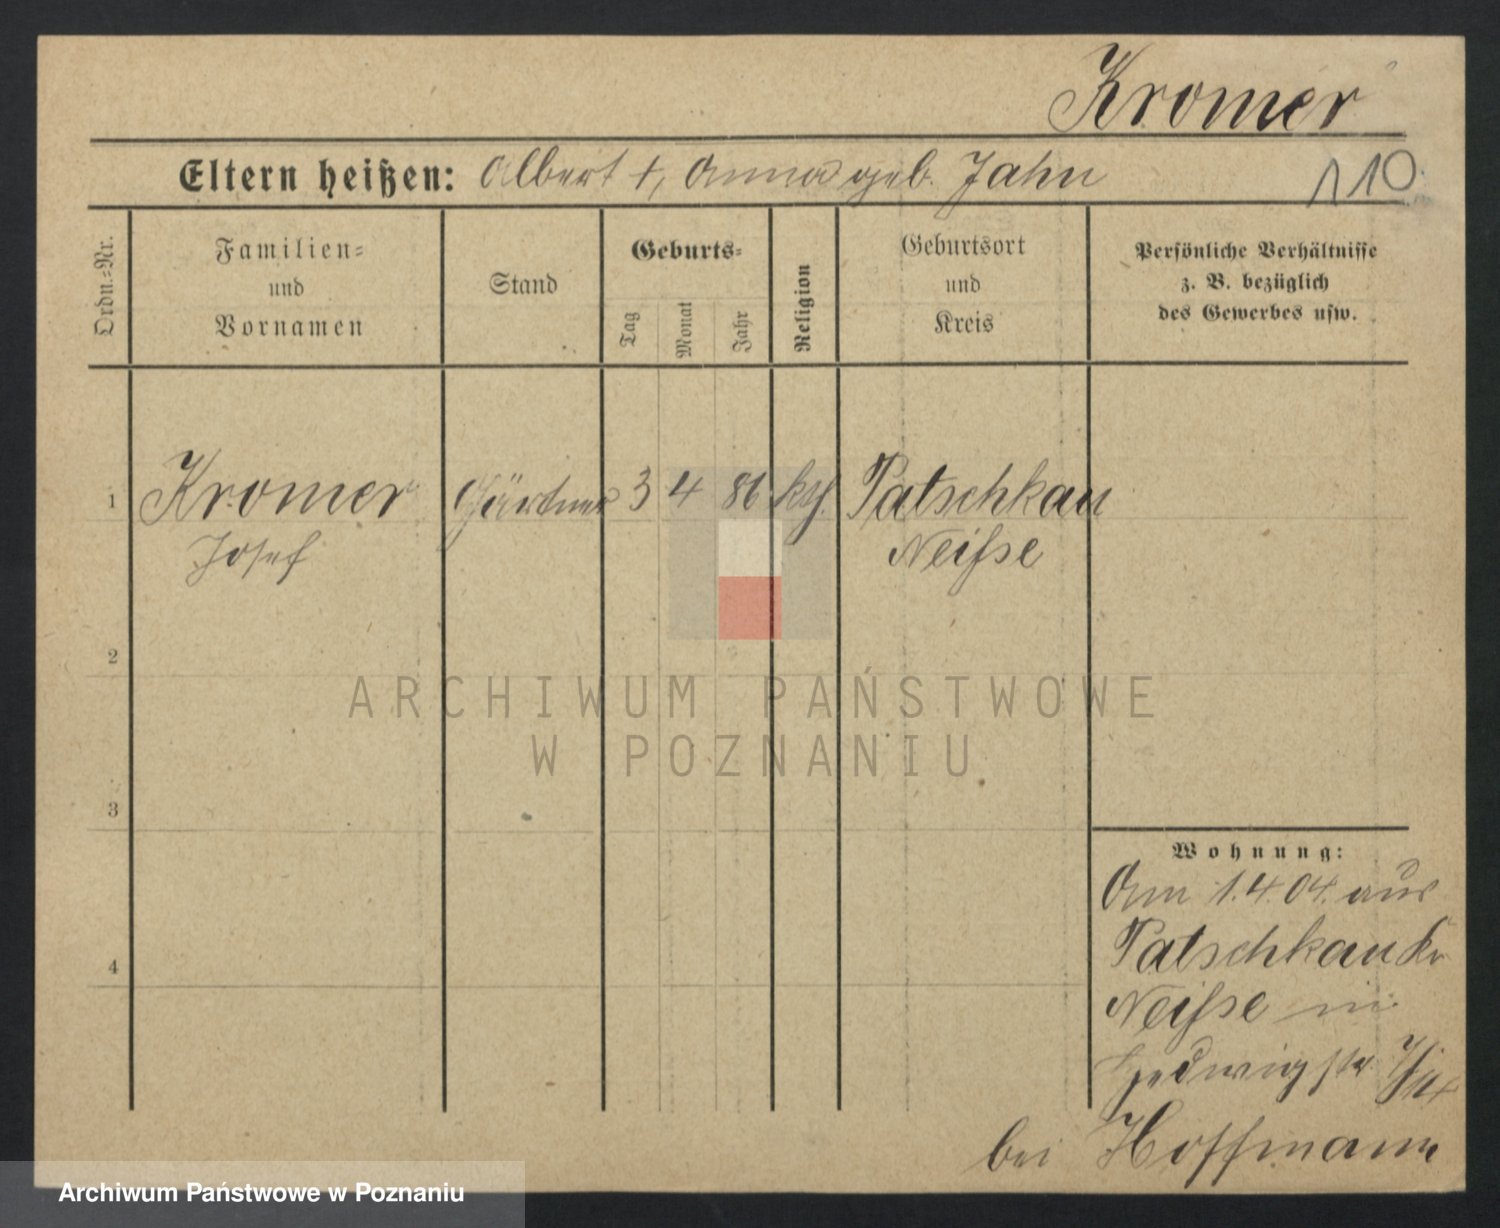 Kromer
Eltern heißen: Albert +, Anna geb. Jahn
110
Ordn.-Nr.
Familien-
und
Vornamen
Stand
Geburts-
Tag
Monat
Jahr
Religion
Geburtsort
und
Kreis
Persönliche Verhältnisse
z. B. bezüglich
des Gewerbes usw.
1 Kromer Gärtner 3 4 86 kth. Patschkau
Josef Neisse
2
3
4
Wohnung:
Am 1.4.04. aus
Patschkau Kr
Neisse in
Hedwigstr
bei Hoffmann
ARCHIWUM PAŃSTWOWE
W POZNANIU
Archiwum Państwowe w Poznaniu